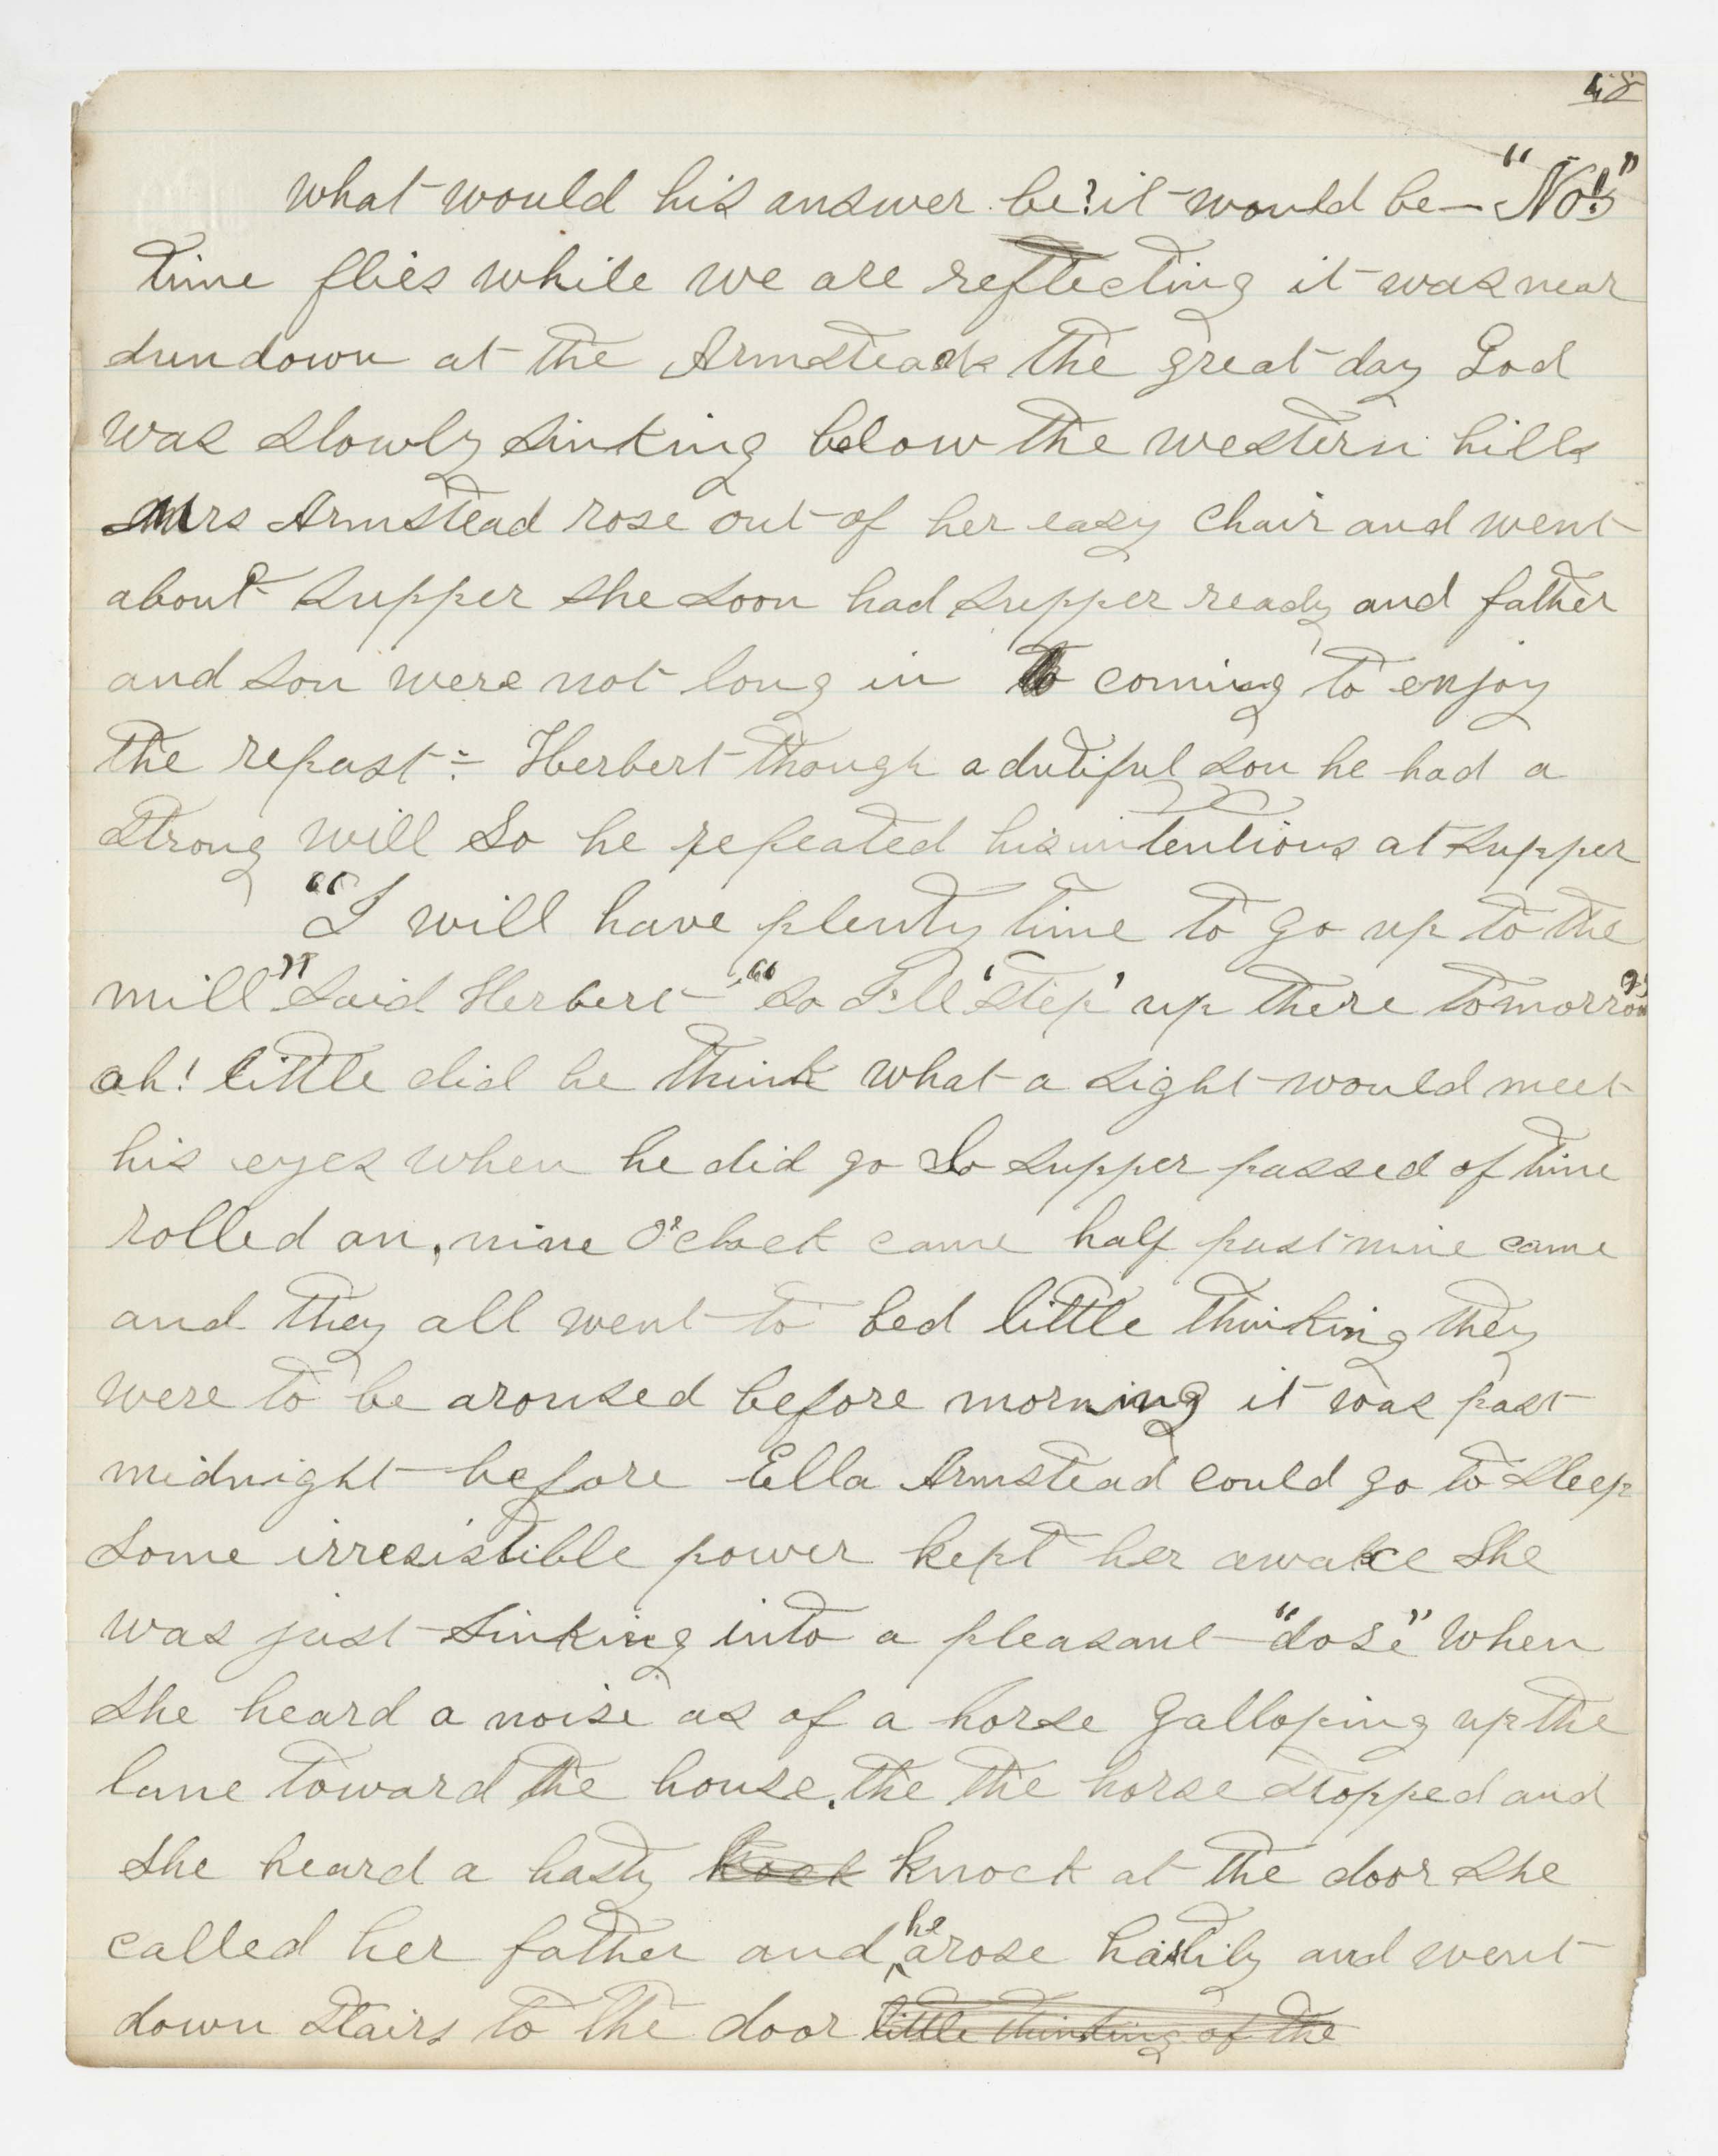 48
what would his answer be? it would be— "No!"
time flies while we are reflecting it was near
sundown at the Armsteads the great day God
was slowly sinking below the western hills
Mrs Armstead rose out of her easy chair and went
about supper she soon had supper ready and father
and son were not long in to coming to enjoy
the repast :- Herbert though a dutiful son he had a
strong will So he repeated his intentions at supper
"I will have plenty time to go up to the
mill" said Herbert — "so I'll 'step' up there tomorrow"
ah! little did he think what a sight would meet
his eyes when he did go So supper passed of time
rolled on, nine O'clock came half past nine came
and they all went to bed little thinking they
were to be aroused before morning it was past
midnight before Ella Armstead could go to sleep
some irresistible power kept her awake She
was just sinking into a pleasant "dose" when
she heard a noise as of a horse galloping up the
lane toward the house. the the horse stopped and
she heard a hasty knock knock at the door she
called her father and he arose hastily and went
down stairs to the door little thinking of the